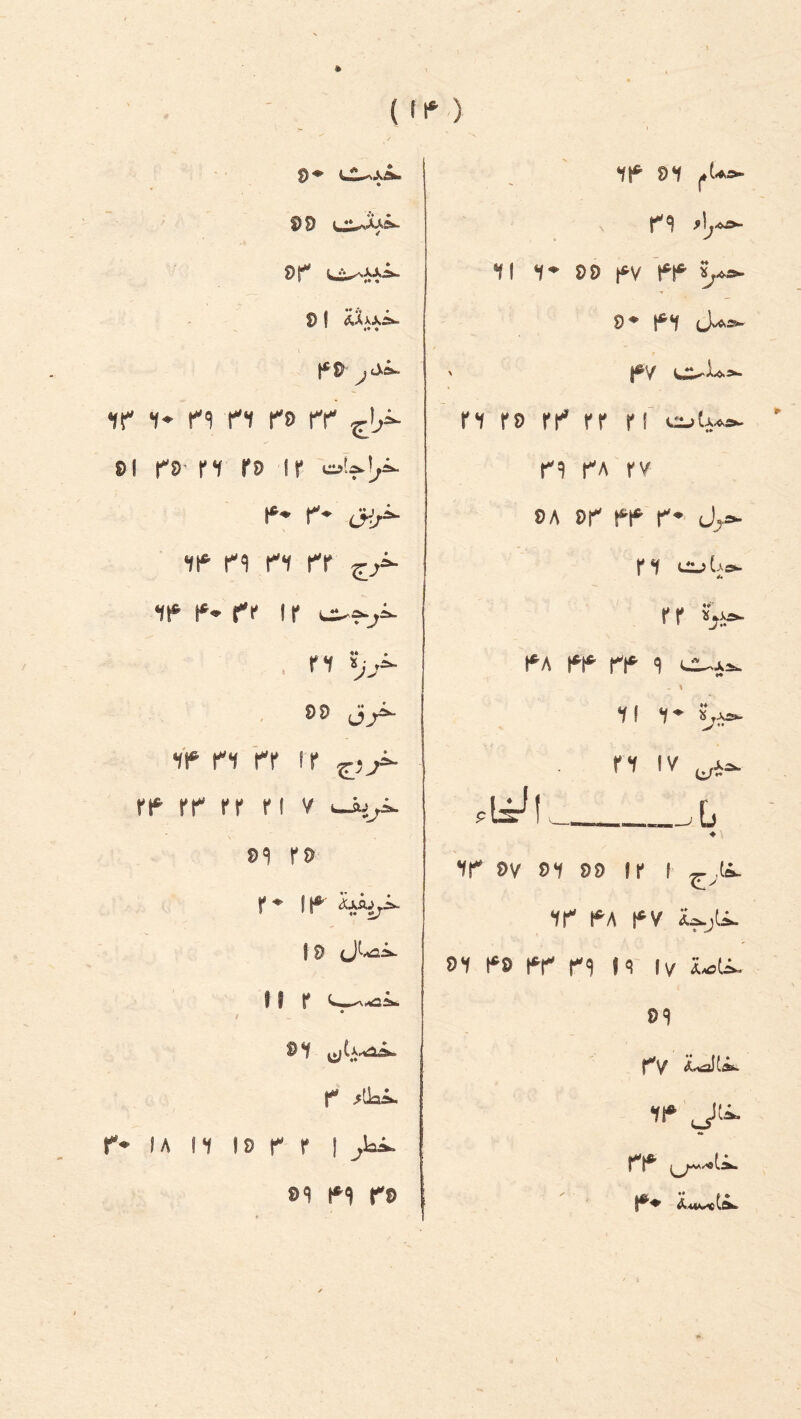 (۱۴)
حمام ۵۶ ۶۴
حمراء ۳۹
حمرة ۴۴ ۴۷ ۵۵ ۶۰ ۶۱
حمل ۴۶ ۵۰
حملت ۴۷
حميات ۲۱ ۲۲ ۲۳ ۲۵ ۲۶
۲۷ ۳۸ ۳۹
حول ۳۰ ۴۴ ۵۳ ۵۸
حيات ۲۶
حيوة ۲۲
حيث ۹ ۳۴ ۴۴ ۴۸
حيرة ۶۰ ۶۱
حين ۱۷ ۲۶
باب الخاء
خارج ۱ ۱۲ ۵۵ ۵۶ ۵۷ ۶۳
خارجة ۴۷ ۴۸ ۶۳
خاصة ۱۷ ۱۹ ۳۹ ۴۳ ۴۵ ۵۶
۵۹
خالصة ۳۷
خالي ۶۴
خامس ۳۴
خامسة ۴۰
خبث ۵۰
خبثت ۵۵
خبيث ۵۳
خبيثة ۵۱
خدر ۴۵
خراج ۳۳ ۳۵ ۳۶ ۳۹ ۶۰ ۶۳
خراجات ۱۲ ۲۵ ۲۶ ۳۵ ۵۱
خربق ۳۰ ۴۰
خرج ۳۲ ۳۶ ۳۹ ۶۴
خرجت ۱۲ ۳۲ ۴۰ ۶۴
خرزة ۲۶
خرق ۵۵
خروج ۱۲ ۳۲ ۳۶ ۶۴
خريف ۷ ۲۱ ۲۲ ۲۳ ۲۴
۲۵ ۵۹
خريفية ۱۴ ۲۰
خصال ۱۵
خصب ۲ ۱۱
خصيان ۵۶
خطاء ۳
خطر ۱ ۲ ۳ ۱۵ ۱۶ ۱۸ ۳۰
۳۵ ۴۹ ۵۹